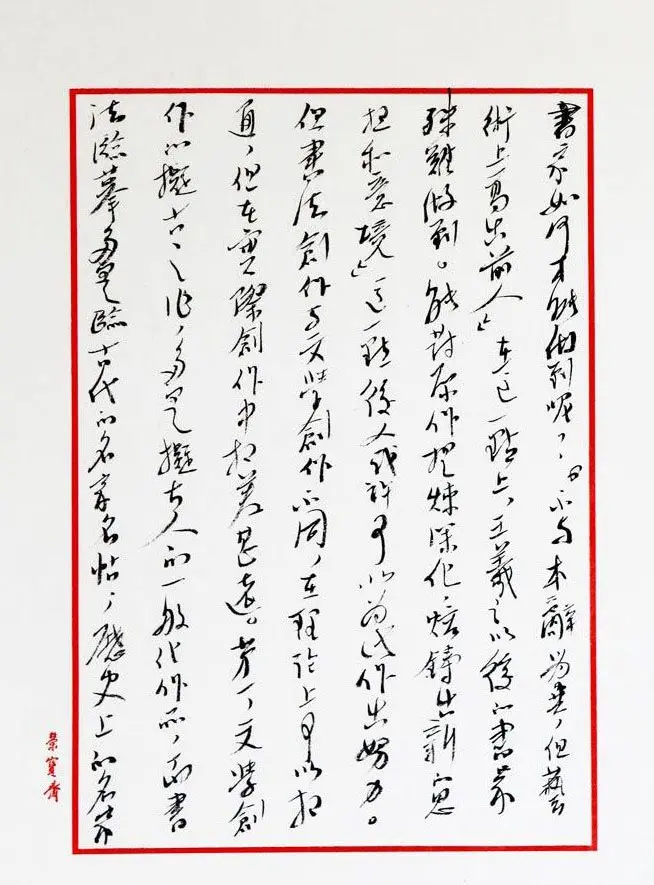 書家如何才能做到呢，“不與本辭為異，但藝
術上高出前人”在這一點上，王羲之以後的書家
殊難做到。能對原作提煉深化，熔鑄出新的思
想和意境”這一點後人或許可以為此作出努力。
但書法創作与文學創作不同，在理論上可以相
通，但在實際創作中相差甚遠。第一，文學創
作的擬古之作，多是擬古人的一般代作品，而書
法臨摹多是臨古代的名家名帖，歷史上的名家
榮寶齋